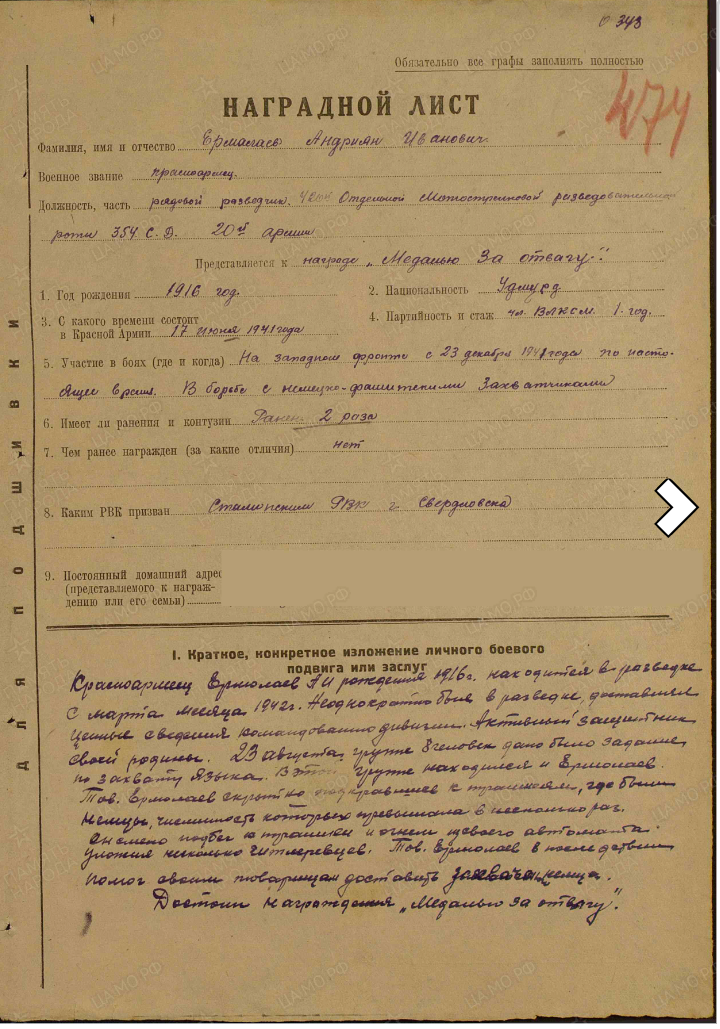 0 343
Обязательно все графы заполнять полностью
НАГРАДНОЙ ЛИСТ
474
Фамилия, имя и отчество Ермолаев Андриан Иванович.
Военное звание красноармеец.
Должность, часть рядовой разведчик. Отдельной Мотострелковой разведовательной
роты 354 С.Д. 20й армии
Представляется к награде „Медалью За отвагу“.
1. Год рождения 1916 год.
2. Национальность Удмурд
3. С какого времени состоит
в Красной Армии 17 июня 1941 года
4. Партийность и стаж чл. ВЛКСМ. 1 год.
5. Участие в боях (где и когда) На западном фронте с 23 декабря 1941 года по насто-
ящее время. В борьбе с немецко-фашистскими Захватчиками
6. Имеет ли ранения и контузии Ранен 2 раза
7. Чем ранее награжден (за какие отличия) нет
8. Каким РВК призван Сталинским РВК г. Свердловска
9. Постоянный домашний адрес
(представляемого к награж-
дению или его семьи)
ДЛЯ ПОДШИВКИ
I. Краткое, конкретное изложение личного боевого
подвига или заслуг
Красноармеец Ермолаев АИ рождения 1916 г. находится в разведке
с марта месяца 1942 г. Неоднократно был в разведке, доставлял
ценные сведения командованию дивизии. Активный защитник
своей родины. 23 августа группе 8 человек дано было задание
по захвату Языка. В этой группе находился и Ермолаев.
Тов. Ермолаев скрытно подкравшись к траншеям, где были
немцы, численность которых превышала в несколько раз.
смело подбег к траншеи и огнем своего автомата
уложил несколько гитлеровцев. Тов. Ермолаев в последствии
помог своим товарищам доставить немца.
Достоин награждения „Медалью за отвагу“.
ЦАМО.РФ